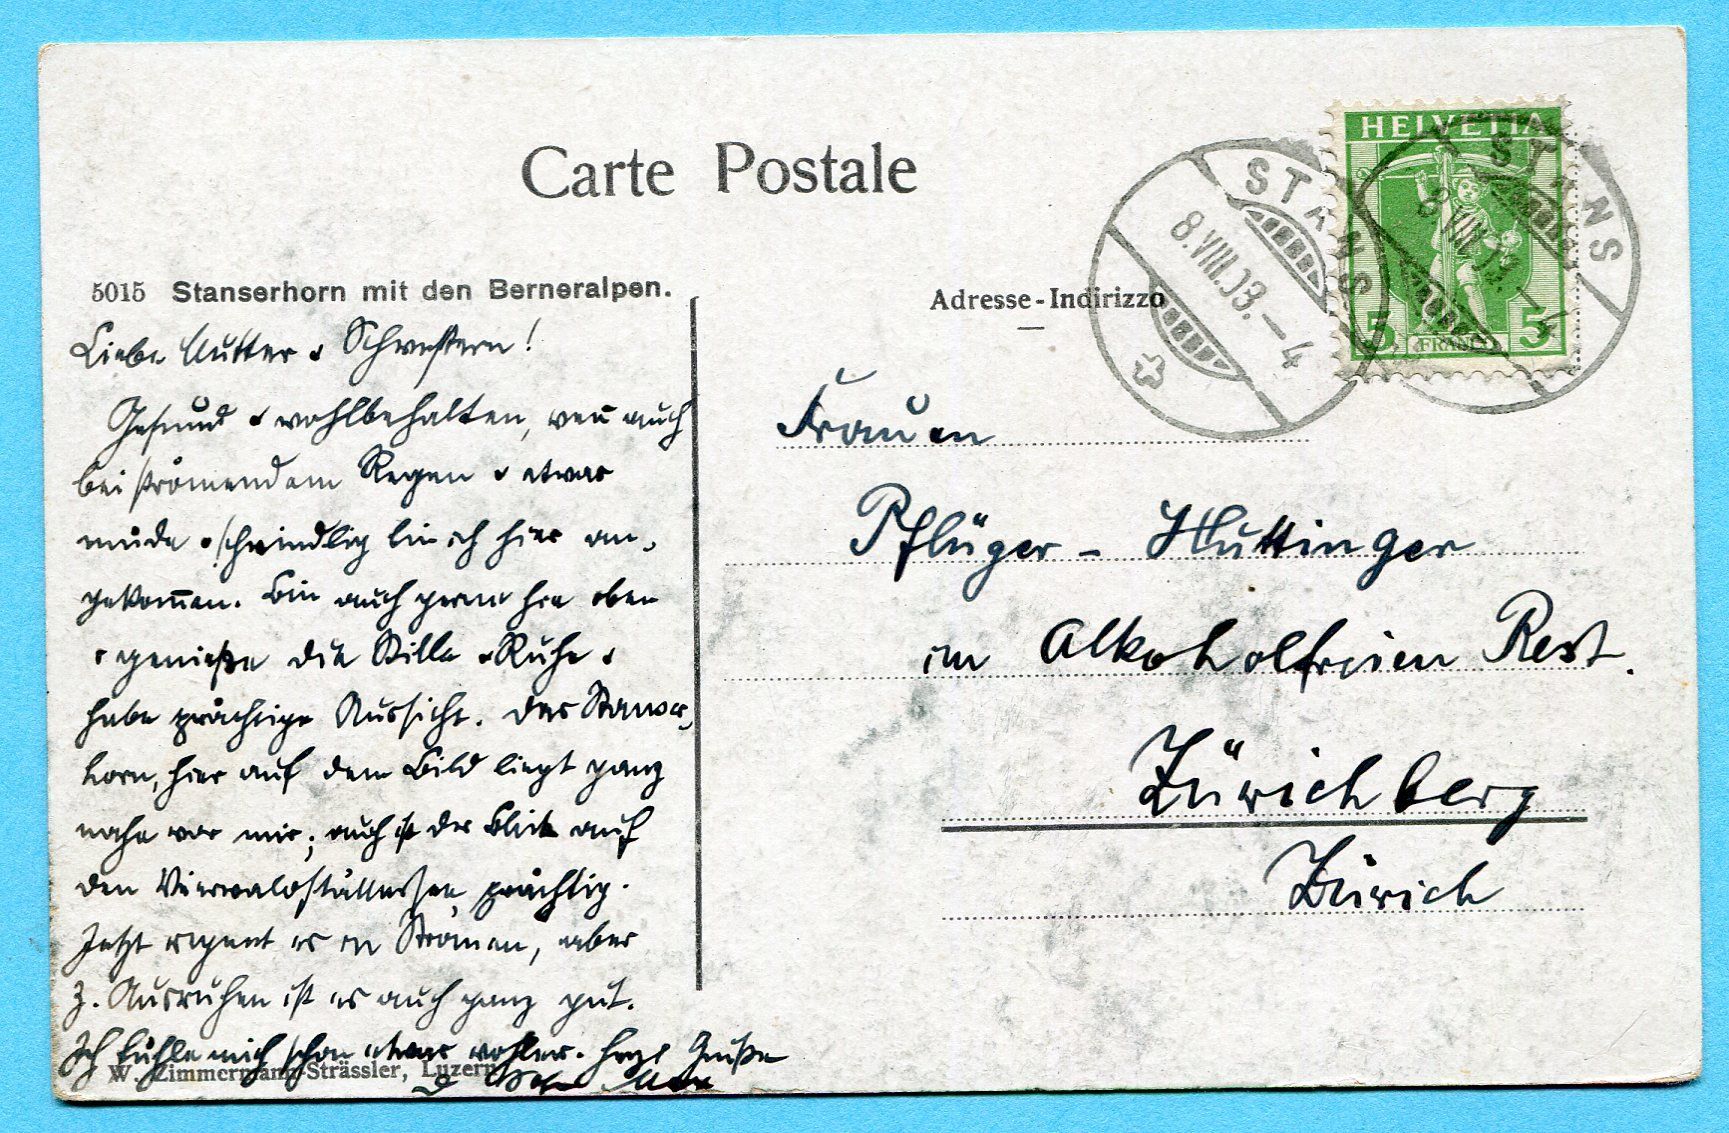 Carte Postale
5015 Stanserhorn mit den Berneralpen.
Adresse-Indirizzo
HELVETIA
5 FRANCO 5
STANS
8.VIII.13.-4
STANS
8.VIII.13.-4
Liebe Mutter & Schwestern!
Gesund & wohlbehalten, weñ auch
bei strömendem Regen & etwas
müde & schwindlig bin ich hier an-
gekom̃en. Bin auch gerne hie oben
& genieße die Stille & Ruhe &
habe prächtige Aussicht. Das Stanser-
horn, hier auf dem Bild liegt ganz
nahe vor mir; auch ist der Blick auf
den Vierwaldstättersee prächtig.
Jetzt regent es in Strömen, aber
z. Ausruhen ist es auch ganz gut.
Ich fühle mich schon etwas wohler. Herzl Grüße
W. Zimmermann-Strässler, Luzern
Frauen
Pflüger - Huttinger
im Alkoholfreien Rest.
Zürichberg
Zürich